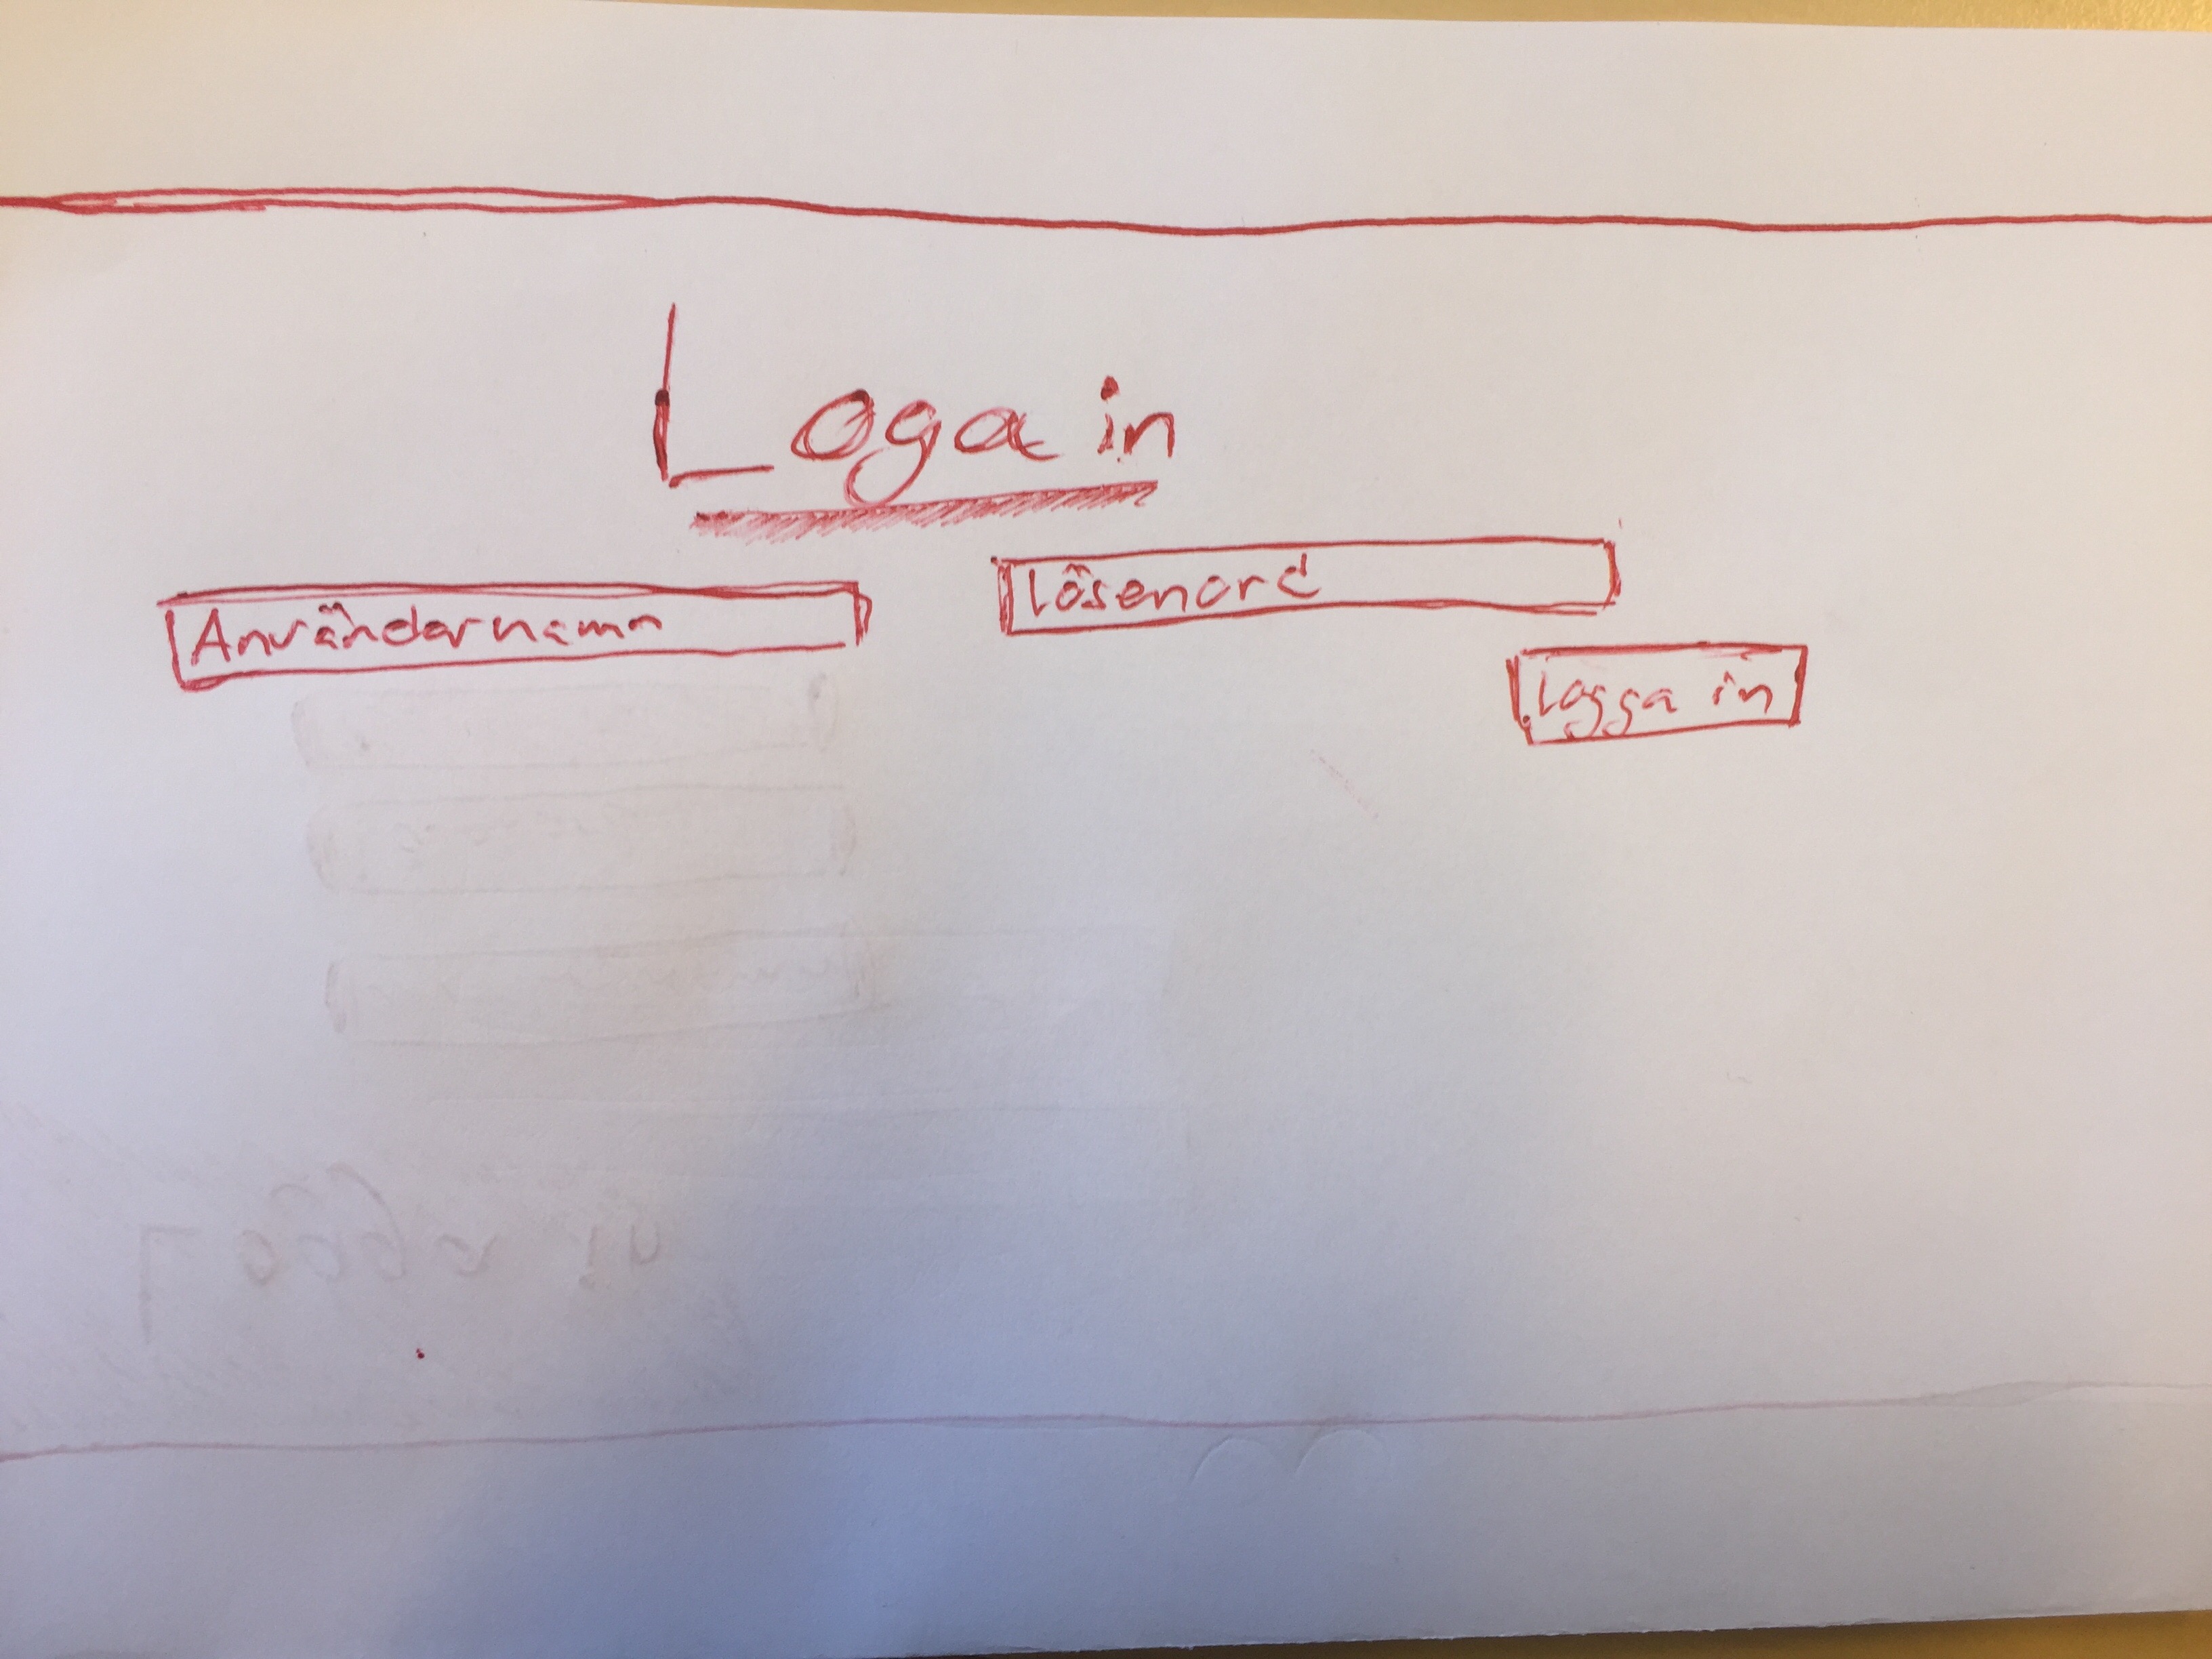 Loga in
Användarnamn
lösenord
logga in